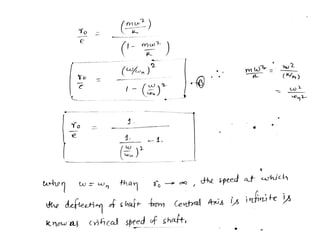 r₀/e = (mω²/k) / (1 - mω²/k)
∴ mω²/k = ω²/(k/m)
r₀/e = (ω/ωn)² / (1 - (ω/ωn)²)
= ω²/ωn²
r₀/e = 1. / (1./(ω/ωn)² - 1.)
when ω = ωn than r₀ → ∞, the speed at which
the deflection of shaft from Central Axis is infinite is
know as critical speed of shaft.